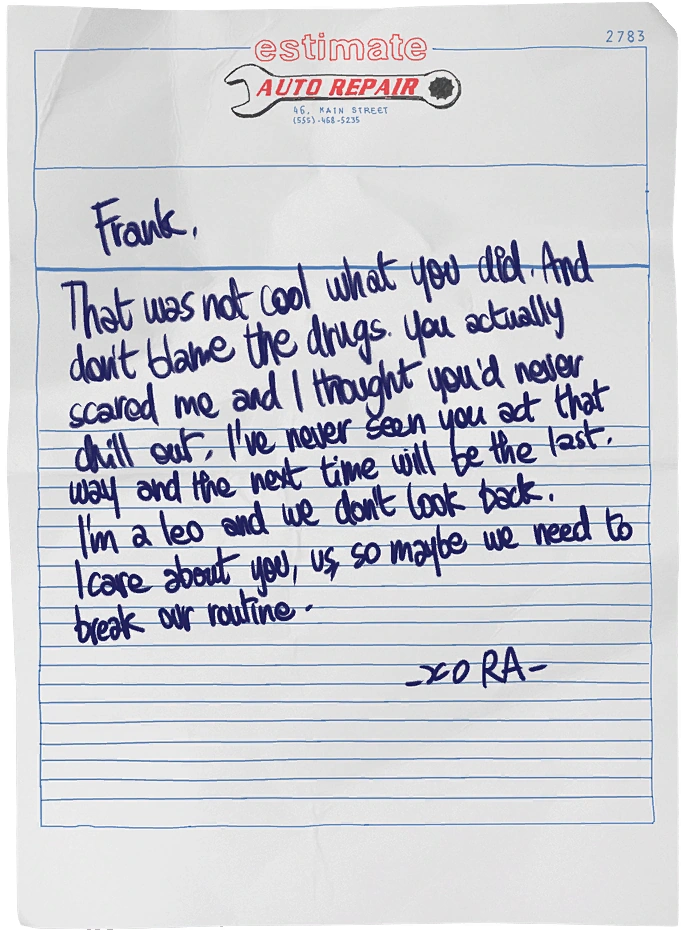 2783
estimate
AUTO REPAIR
46, MAIN STREET
(555)-468-5235
Frank,
That was not cool what you did. And
don't blame the drugs. You actually
scared me and I thought you'd never
chill out. I've never seen you act that
way and the next time will be the last.
I'm a leo and we don't look back.
I care about you, us, so maybe we need to
break our routine.
-xo RA-